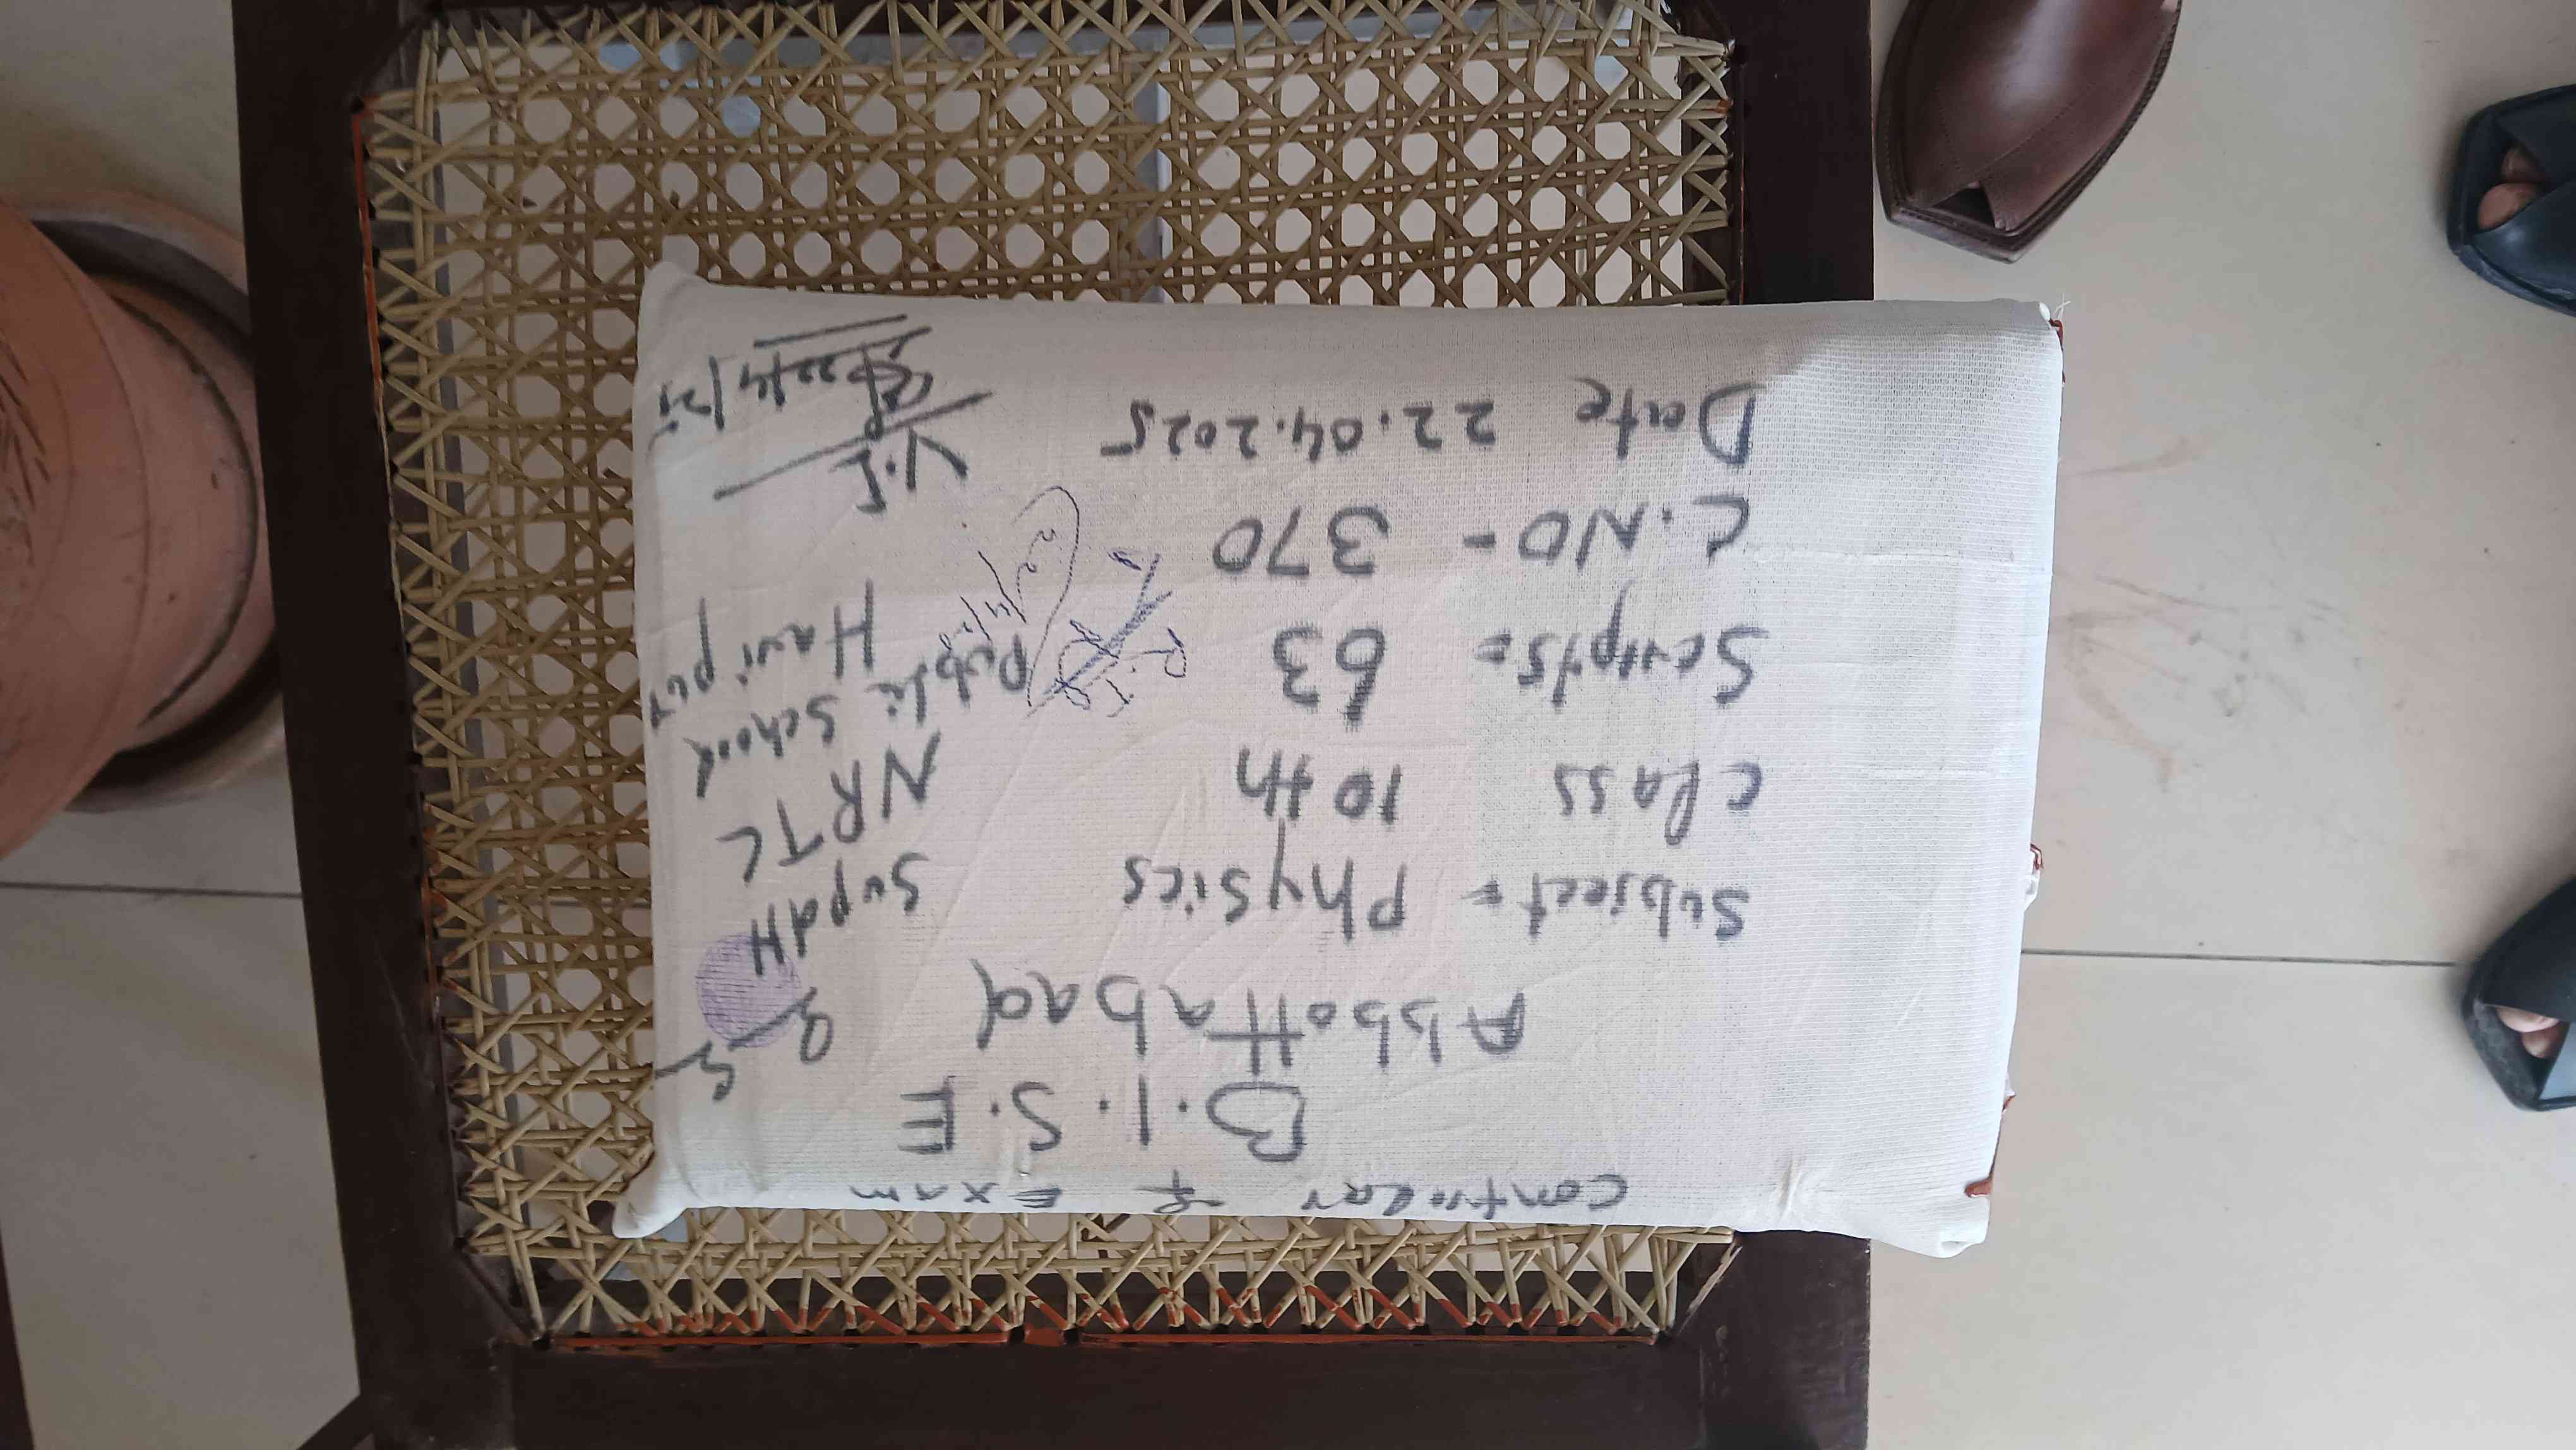 controlar of Exam
B.I.S.E
Abbottabad
Subject = Physics
class 10th
Scripts = 63
C.NO - 370
Date 22.04.2025
SupdH
NRTC
Public School
Haripur
V.I
22/4/25